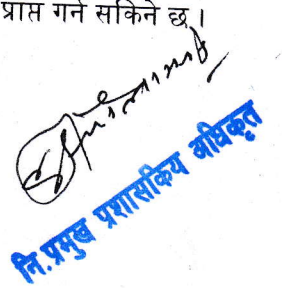 प्राप्त गर्न सकिने छ ।
नि.प्रमुख प्रशासकिय अधिकृत